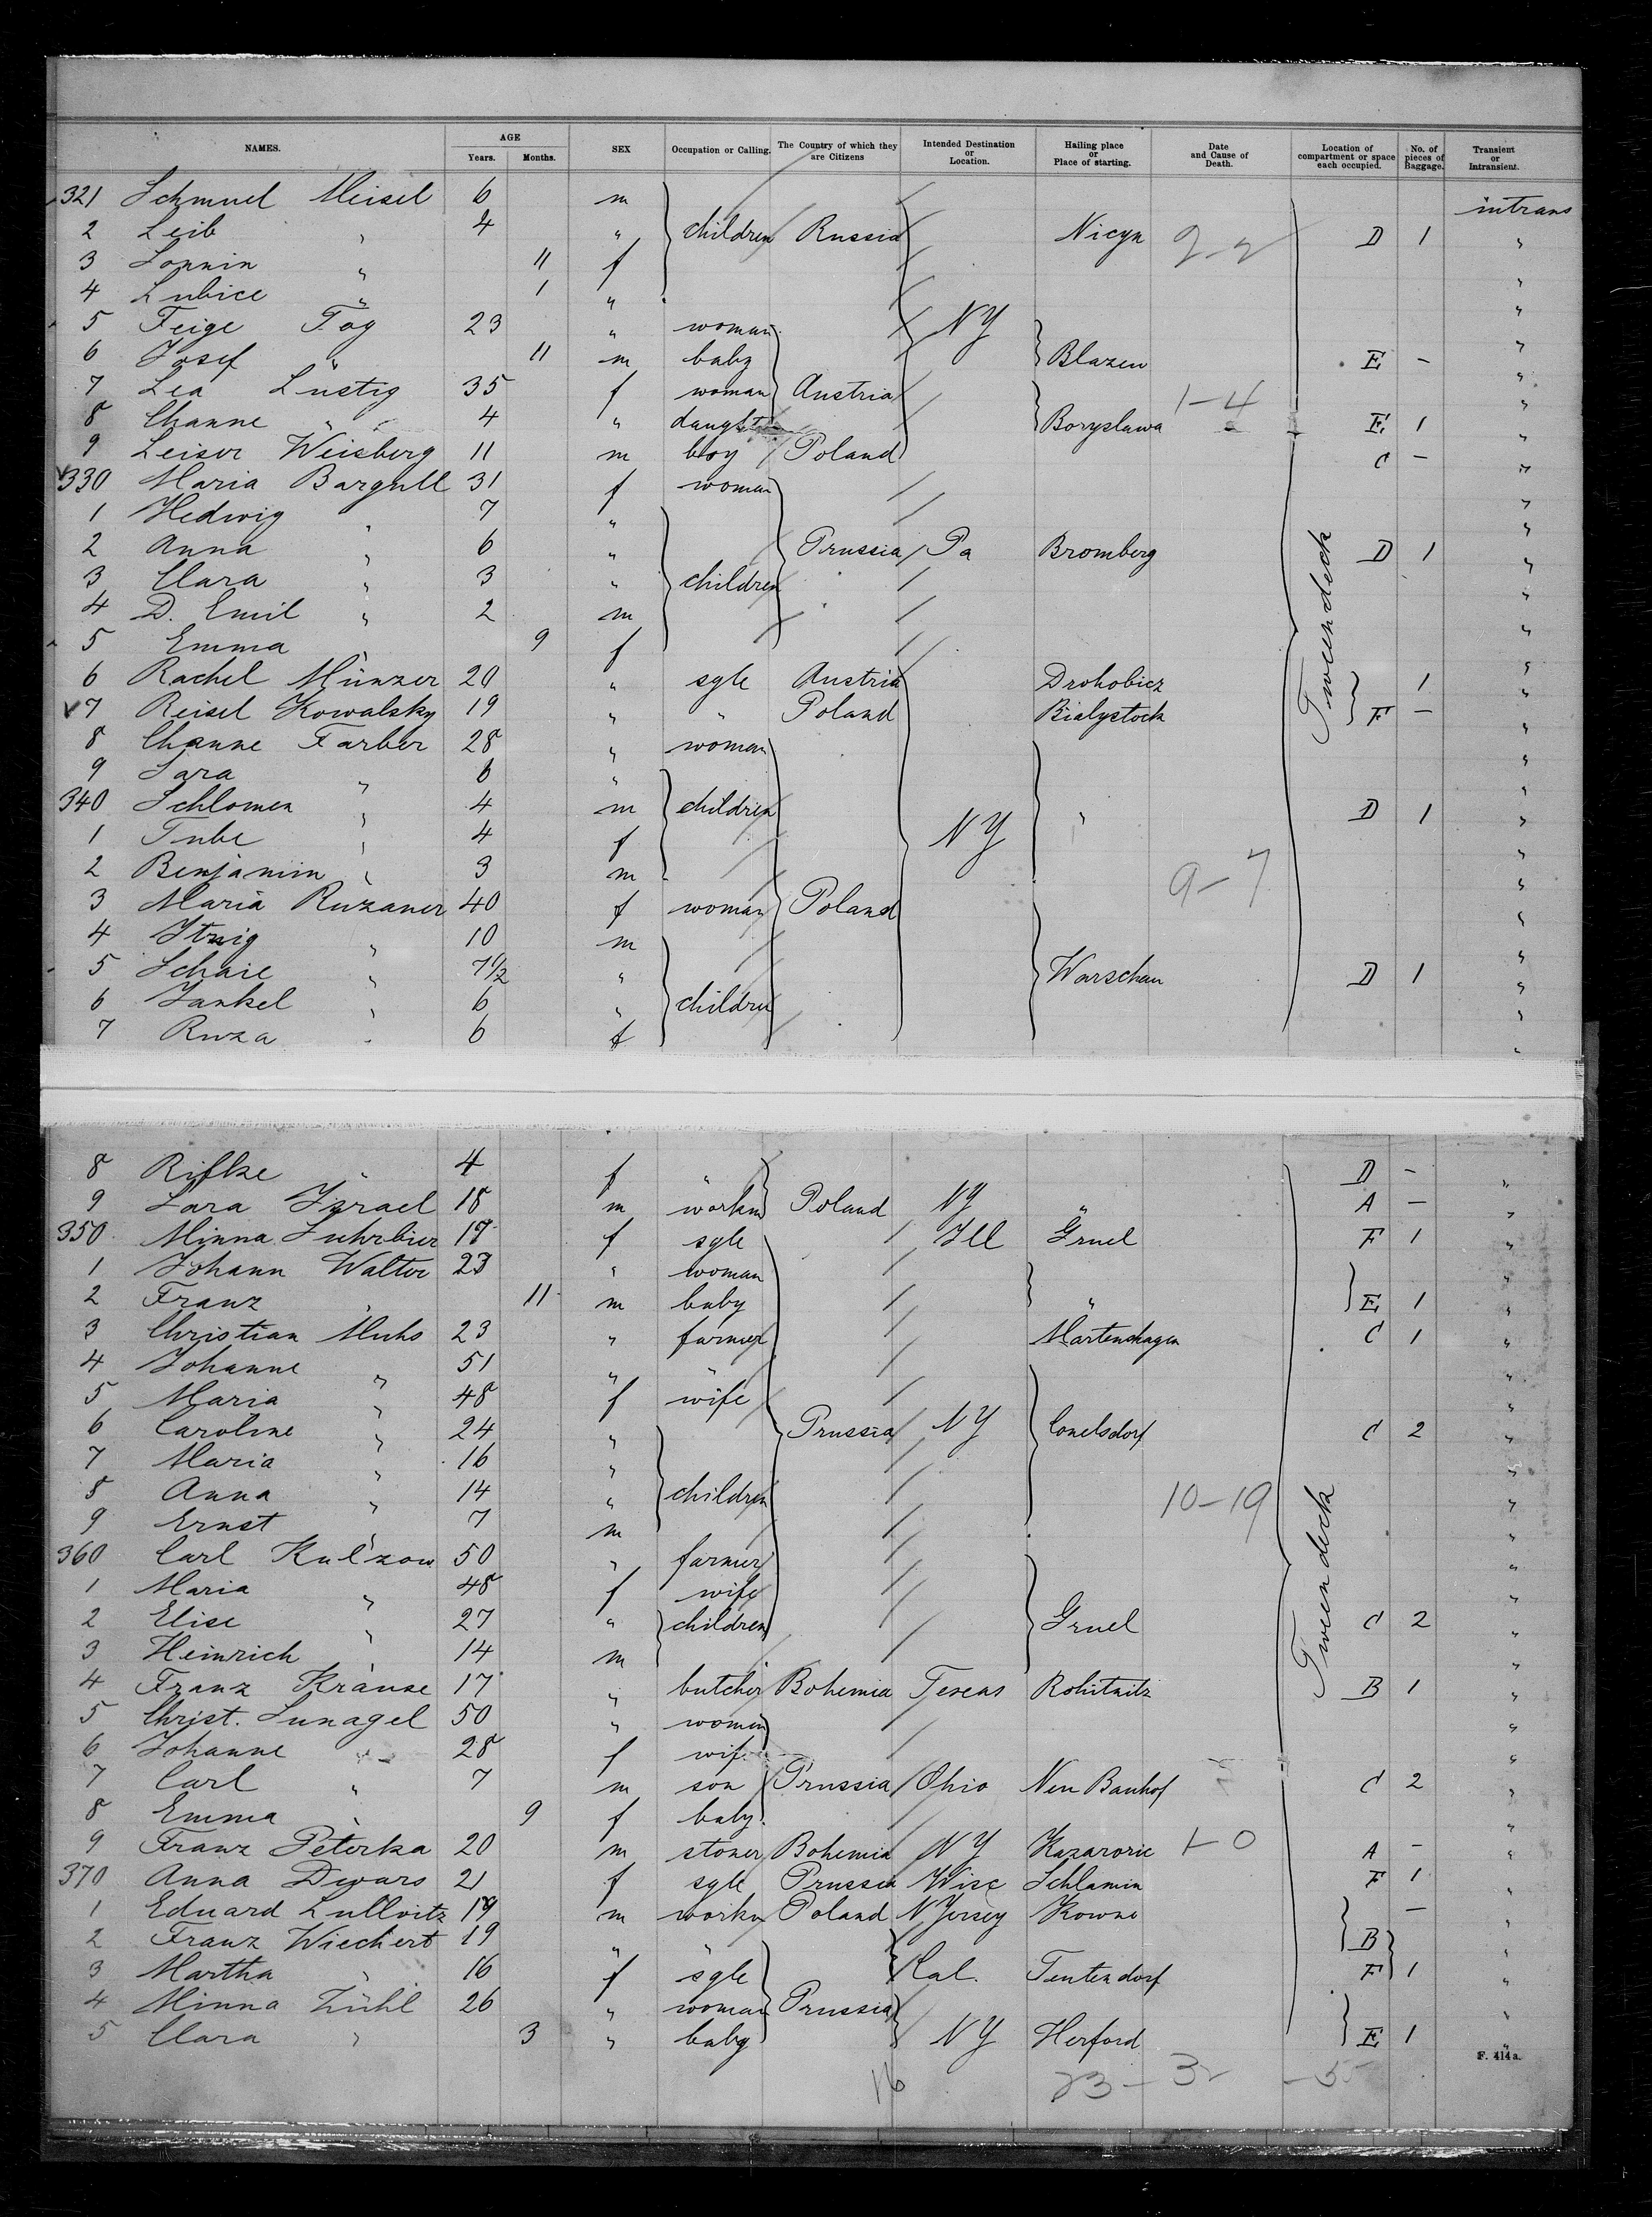 NAMES. AGE Years. Months. SEX Occupation or Calling. The Country of which they are Citizens Intended Destination or Location. Hailing place or Place of starting. Date and Cause of Death. Location of compartment or space each occupied. No. of pieces of Baggage. Transient or Intransient.
321 Schmuel Meisel 6 m intrans
2 Leib " 4 " children Russia Nicyn D 1 "
3 " 11 f "
4 Lubice " 1 " "
5 Feige Tag 23 " woman NY "
6 Josef " 11 m baby Blazen E - "
7 Lea Lustig 35 f woman Austria 1-4 "
8 Channe " 4 " daught Boryslawa E 1 "
9 Leiser Weisberg 11 m boy Poland C - "
330 Maria Bargull 31 f woman "
1 Hedwig " 7 " "
2 Anna " 6 " Prussia Pa Bromberg D 1 "
3 Clara " 3 " children "
4 D. Emil " 2 m "
5 Emma " 9 f "
6 Rachel Münzer 20 " sgle Austria Drohobicz 1 "
7 Reisel Kowalsky 19 " " Poland Bialystock F - "
8 Channe Farber 28 " woman "
9 Sara " 6 " "
340 Schlomen " 4 m children NY " D 1 "
1 Tube " 4 f "
2 Benjamin " 3 m 9-7 "
3 Maria Ruzaner 40 f woman Poland "
4 Itzig " 10 m "
5 Schaie " 7 1/2 " Warschau D 1 "
6 Jankel " 6 " children "
7 Ruza " 6 f "
Tweendeck
8 Rifke " 4 f " D - "
9 Sara Israel 18 m workm Poland NY " A - "
350 Minna Suhrbier 17 f sgle Ill Gruel F 1 "
1 Johann Walter 23 " woman "
2 Franz " 11 m baby " E 1 "
3 Christian Muhs 23 " farmer Martenshagen C 1 "
4 Johanne " 51 " "
5 Maria " 48 f wife "
6 Caroline " 24 " Prussia NY Conelsdorf C 2 "
7 Maria " 16 " "
8 Anna " 14 " children 10-19 "
9 Ernst " 7 m "
360 Carl Kulzow 50 " farmer "
1 Maria " 48 f wife "
2 Elise " 27 " children Gruel C 2 "
3 Heinrich " 14 m "
4 Franz Krause 17 " butcher Bohemia Texas Rohitnitz B 1 "
5 Christ. Lunagel 50 " women "
6 Johanne " 28 f wife "
7 Carl " 7 m son Prussia Ohio Neu Banhof C 2 "
8 Emma " 9 f baby "
9 Franz Peterka 20 m stoner Bohemia NY Kazarovic 1-0 A - "
370 Anna Dwars 21 f sgle Prussia Wisc Schlamin F 1 "
1 Eduard Lullvitz 19 m workm Poland N Jersey Kowno - "
2 Franz Wiechert 19 " " B "
3 Martha " 16 f sgle Cal. Tentendorf F 1 "
4 Minna Zühl 26 " woman Prussia "
5 Clara " 3 " baby NY Herford E 1 "
Tweendeck
F. 414a.
16 23-32 -55